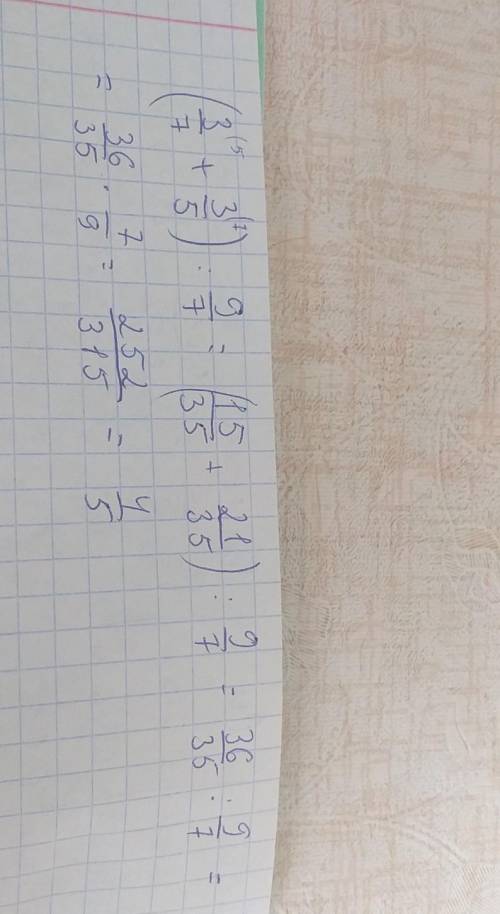 (3/7⁽⁵ + 3/5⁽⁷) : 9/7 = (15/35 + 21/35) : 9/7 = 36/35 : 9/7 =
= 36/35 · 7/9 = 252/315 = 4/5